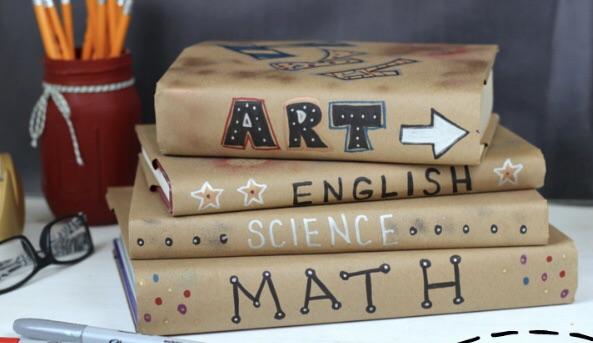 ART
ENGLISH
SCIENCE
MATH